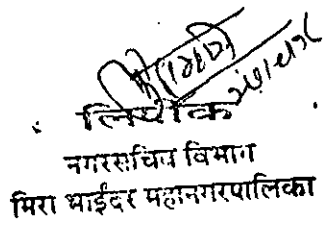 लिपीक
नगरसचिव विभाग
मिरा भाईंदर महानगरपालिका